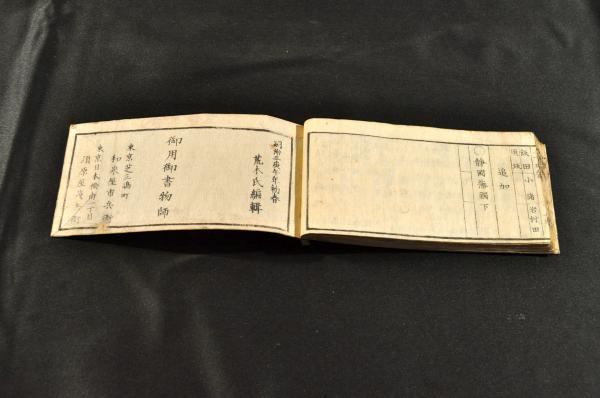 飯田 小諸 岩村田
須坂
追加
静岡藩
下
明治三庚午年初春
荒木氏編輯
御用御書物師
東京芝三島町
和泉屋市兵衛
東京日本橋南一丁目
須原屋茂兵衛